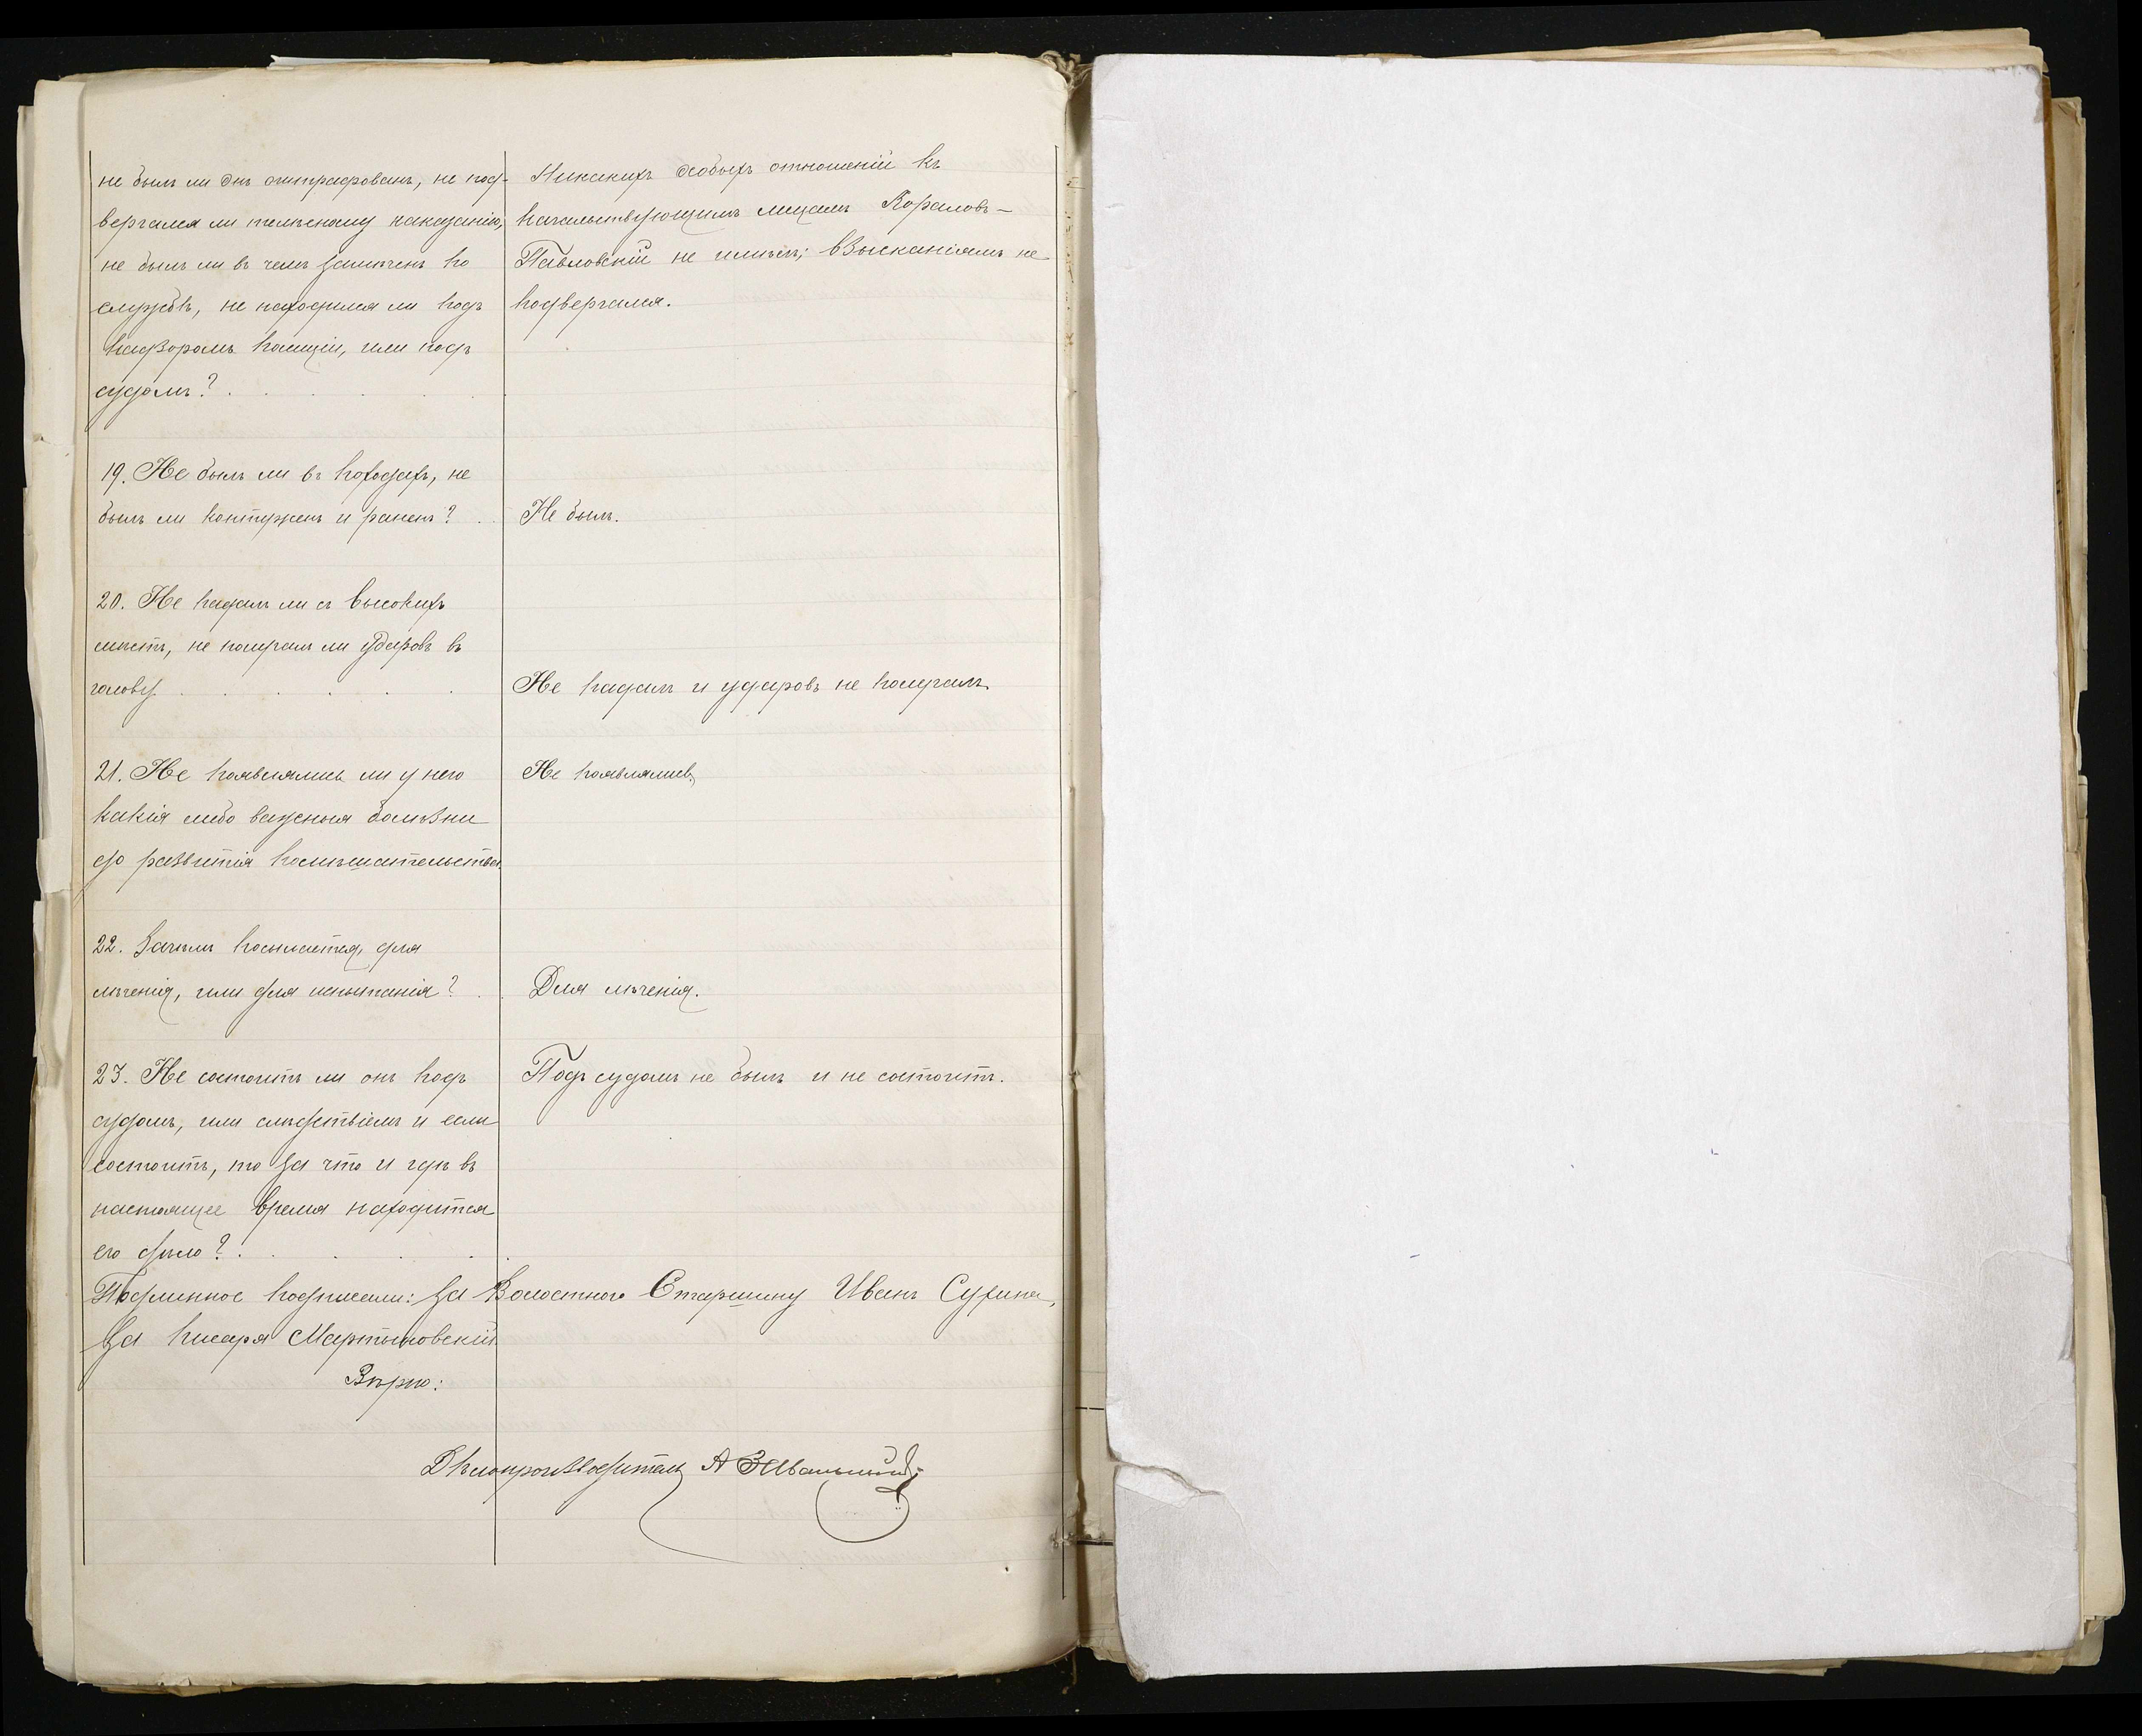 не былъ ли онъ оштрафованъ, не под-
вергался ли тѣлесному наказанію,
не былъ ли въ чемъ замѣченъ по
службѣ, не находился ли подъ
надзоромъ полиціи, или подъ
судомъ?
Никакихъ особыхъ отношеній къ
начальствующимъ лицамъ Кораловъ-
Павловскій не имѣлъ; взысканіямъ не
подвергался.
19. Не былъ ли въ походахъ, не
былъ ли контуженъ и раненъ?
Не былъ.
20. Не падалъ ли съ высокихъ
мѣстъ, не получалъ ли ударовъ въ
голову
Не падалъ и ударовъ не получалъ
21. Не появлялись ли у него
какія либо важныя болѣзни
до развитія помѣшательства
Не появлялись
22. Зачѣмъ посылается, для
лѣченія, или для испытанія?
Для лѣченія.
23. Не состоитъ ли онъ подъ
судомъ, или слѣдствіемъ и если
состоитъ, то за что и гдѣ въ
настоящее время находится
его дѣло?
Подъ судомъ не былъ и не состоитъ.
Подлинное подписали: За Волостного Старшину Иванъ Сухина,
За писаря Мартыновскій.
Вѣрно:
Дѣлопроизводитель А